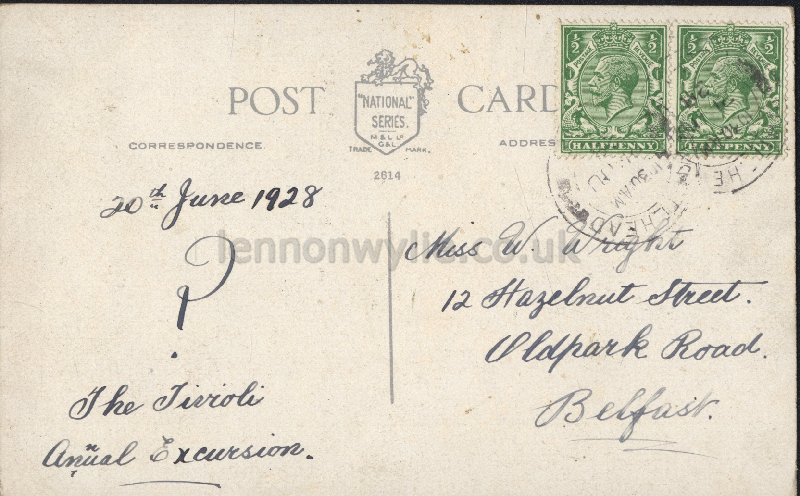 POST CARD
"NATIONAL"
SERIES.
M & L Ld
G & L.
TRADE MARK.
CORRESPONDENCE.
ADDRESS
2614
½ POSTAGE REVENUE ½
HALFPENNY
½ POSTAGE REVENUE ½
HALFPENNY
30 AM
20th June 1928
?
The Tivioli
Anual Excursion.
Miss W. Wright
12 Hazelnut Street.
Oldpark Road.
Belfast.
lennonwylie.co.uk